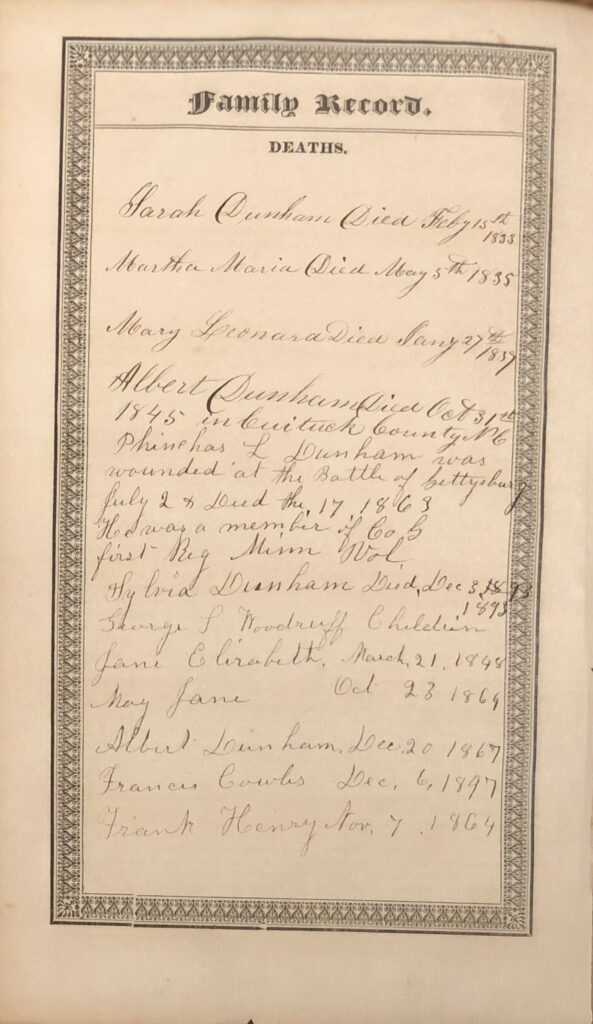 Family Record.
DEATHS.
Sarah Dunham Died Feby 15th
1833
Martha Maria Died May 5th 1835
Mary Leonard Died Jany 27th
1837
Albert Dunham Died Oct 31st
1845 in Cuituck County NC
Phinehas L Dunham was
wounded at the Battle of Gettysburg
July 2 & Died the 17 1863
He was a member of Co G
first Reg Minn Vol
Sylvia Dunham Died, Dec 3,
1893
George S Woodruff Children
Jane Elizabeth, March, 21, 1848
May Jane Oct 23 1864
Albert Dunham, Dec. 20 1867
Francis Cowls Dec, 6, 1897
Frank Henry Nov, 7, 1864